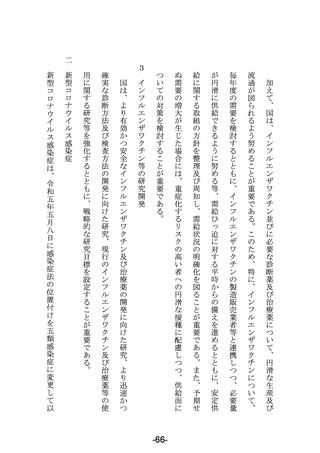 加えて、国は、インフルエンザワクチン並びに必要な診断薬及び治療薬について、円滑な生産及び
流通が図られるよう努めることが重要である。このため、特に、インフルエンザワクチンについて、
毎年度の需要を検討するとともに、インフルエンザワクチンの製造販売業者等と連携しつつ、必要量
が円滑に供給できるように努める等、需給ひっ迫に対する平時からの備えを進めるとともに、安定供
給に関する取組の方針を整理及び周知し、需給状況の明確化を図ることが重要である。また、予期せ
ぬ需要の増大が生じた場合には、重症化するリスクの高い者への円滑な接種に配慮しつつ、供給面に
ついての対策を検討することが重要である。
3 インフルエンザワクチン等の研究開発
国は、より有効かつ安全なインフルエンザワクチン及び治療薬の開発に向けた研究、より迅速かつ
確実な診断方法及び検査方法の開発に向けた研究、現行のインフルエンザワクチン及び治療薬等の使
用に関する研究等を強化するとともに、戦略的な研究目標を設定することが重要である。
二 新型コロナウイルス感染症
新型コロナウイルス感染症は、令和五年五月八日に感染症法の位置付けを五類感染症に変更して以
-66-